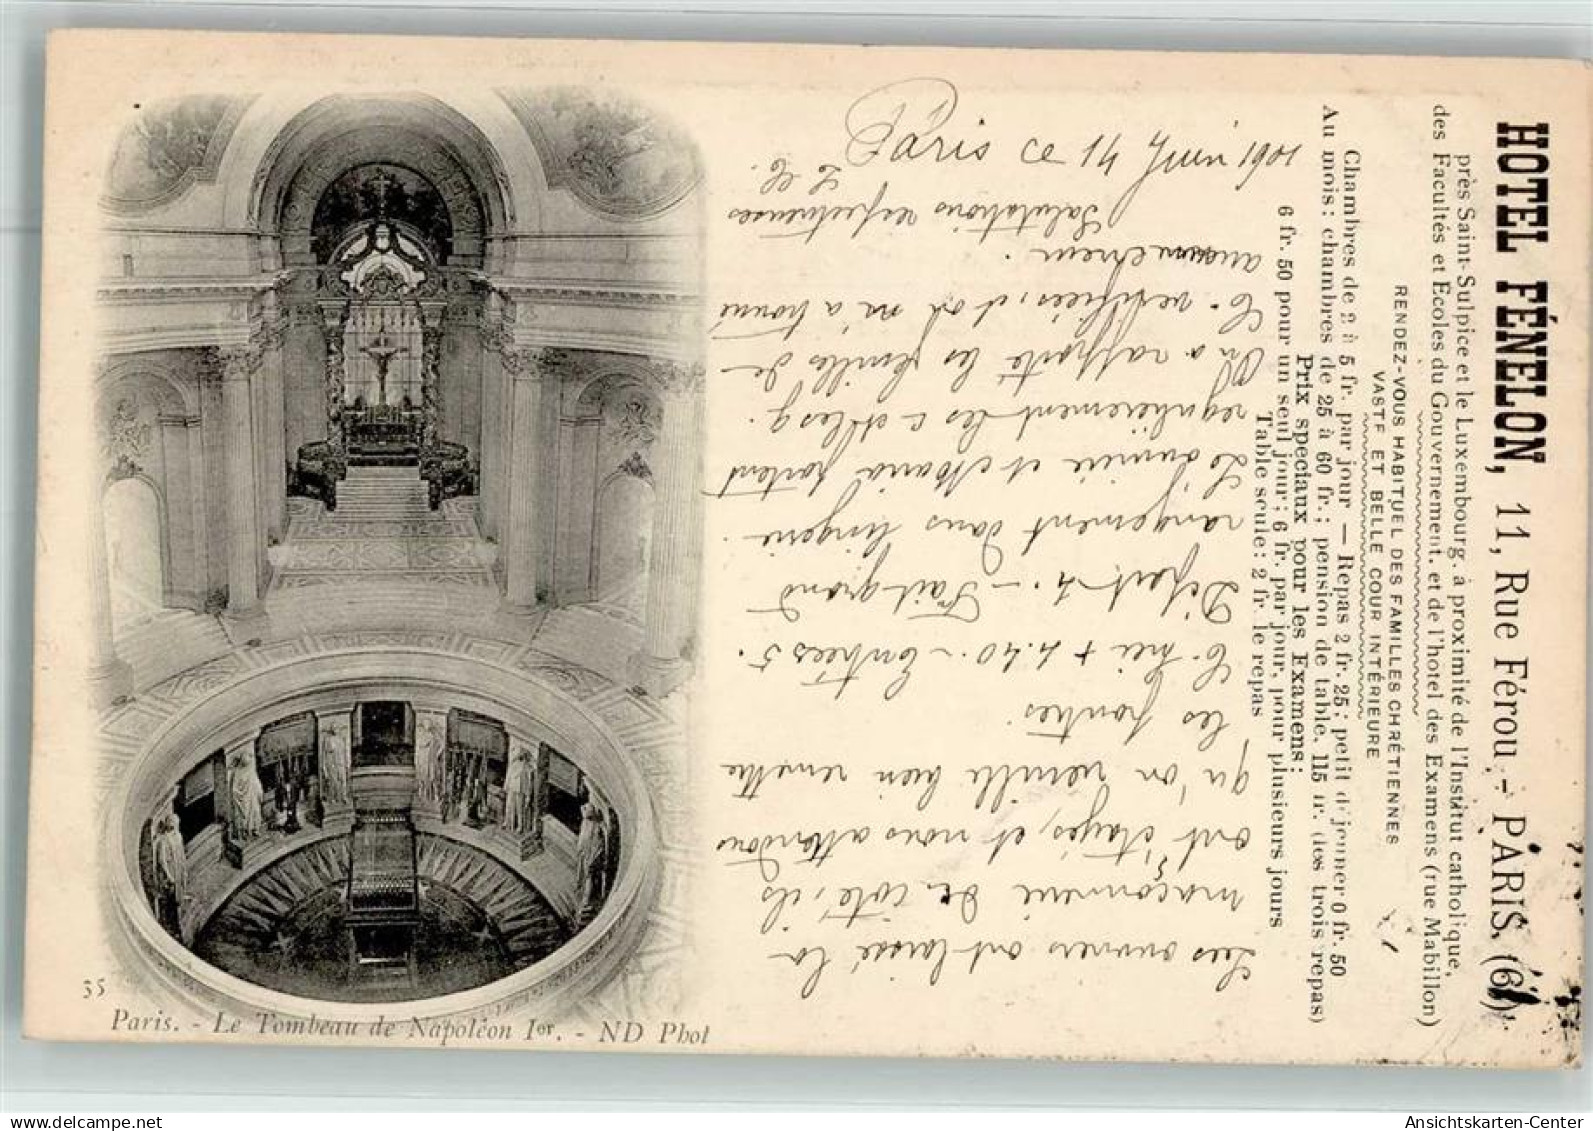 HOTEL FÉNELON, 11, Rue Férou. - PARIS. (6e)
près Saint-Sulpice et le Luxembourg, à proximité de l'Institut catholique,
des Facultés et Ecoles du Gouvernement, et de l'hotel des Examens (rue Mabillon)
RENDEZ-VOUS HABITUEL DES FAMILLES CHRÉTIENNES
VASTE ET BELLE COUR INTÉRIEURE
Chambres de 2 à 5 fr. par jour — Repas 2 fr. 25; petit déjeuner 0 fr. 50
Au mois: chambres de 25 à 60 fr.; pension de table, 115 fr. (les trois repas)
Prix spéciaux pour les Examens:
6 fr. 50 pour un seul jour; 6 fr. par jour, pour plusieurs jours
Table seule: 2 fr. le repas
Paris ce 14 Juin 1901
Les ouvriers ont laissé la
maçonnerie de côté, ils
ont étayés, et nous attendons
qu'on veuille bien remettre
les poutres.
+ 4.40. - Entrées 5.
Départ 4. - Fait grand
rangement dans lingerie.
et Maria portent
régulièrement les
On a rapporté les feuilles de
vérifiées, et on m'a trouvé
aucune erreur.
Salutations respectueuses
35
Paris. - Le Tombeau de Napoléon Ier. - ND Phot
AnsichtsKarten-Center